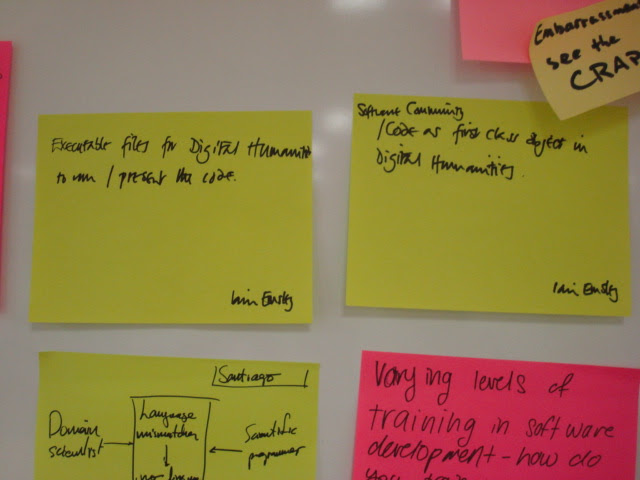 Embarrassment
see the
CRAP
Executable files for Digital Humanities
to run / present the code.
Iain Emsley
Software Community
/Code as first class object in
Digital Humanities.
Iain Emsley
Santiago
Domain
scientist
Language
mismatch
Scientific
programmer
Varying levels of
training in software
development - how do
you